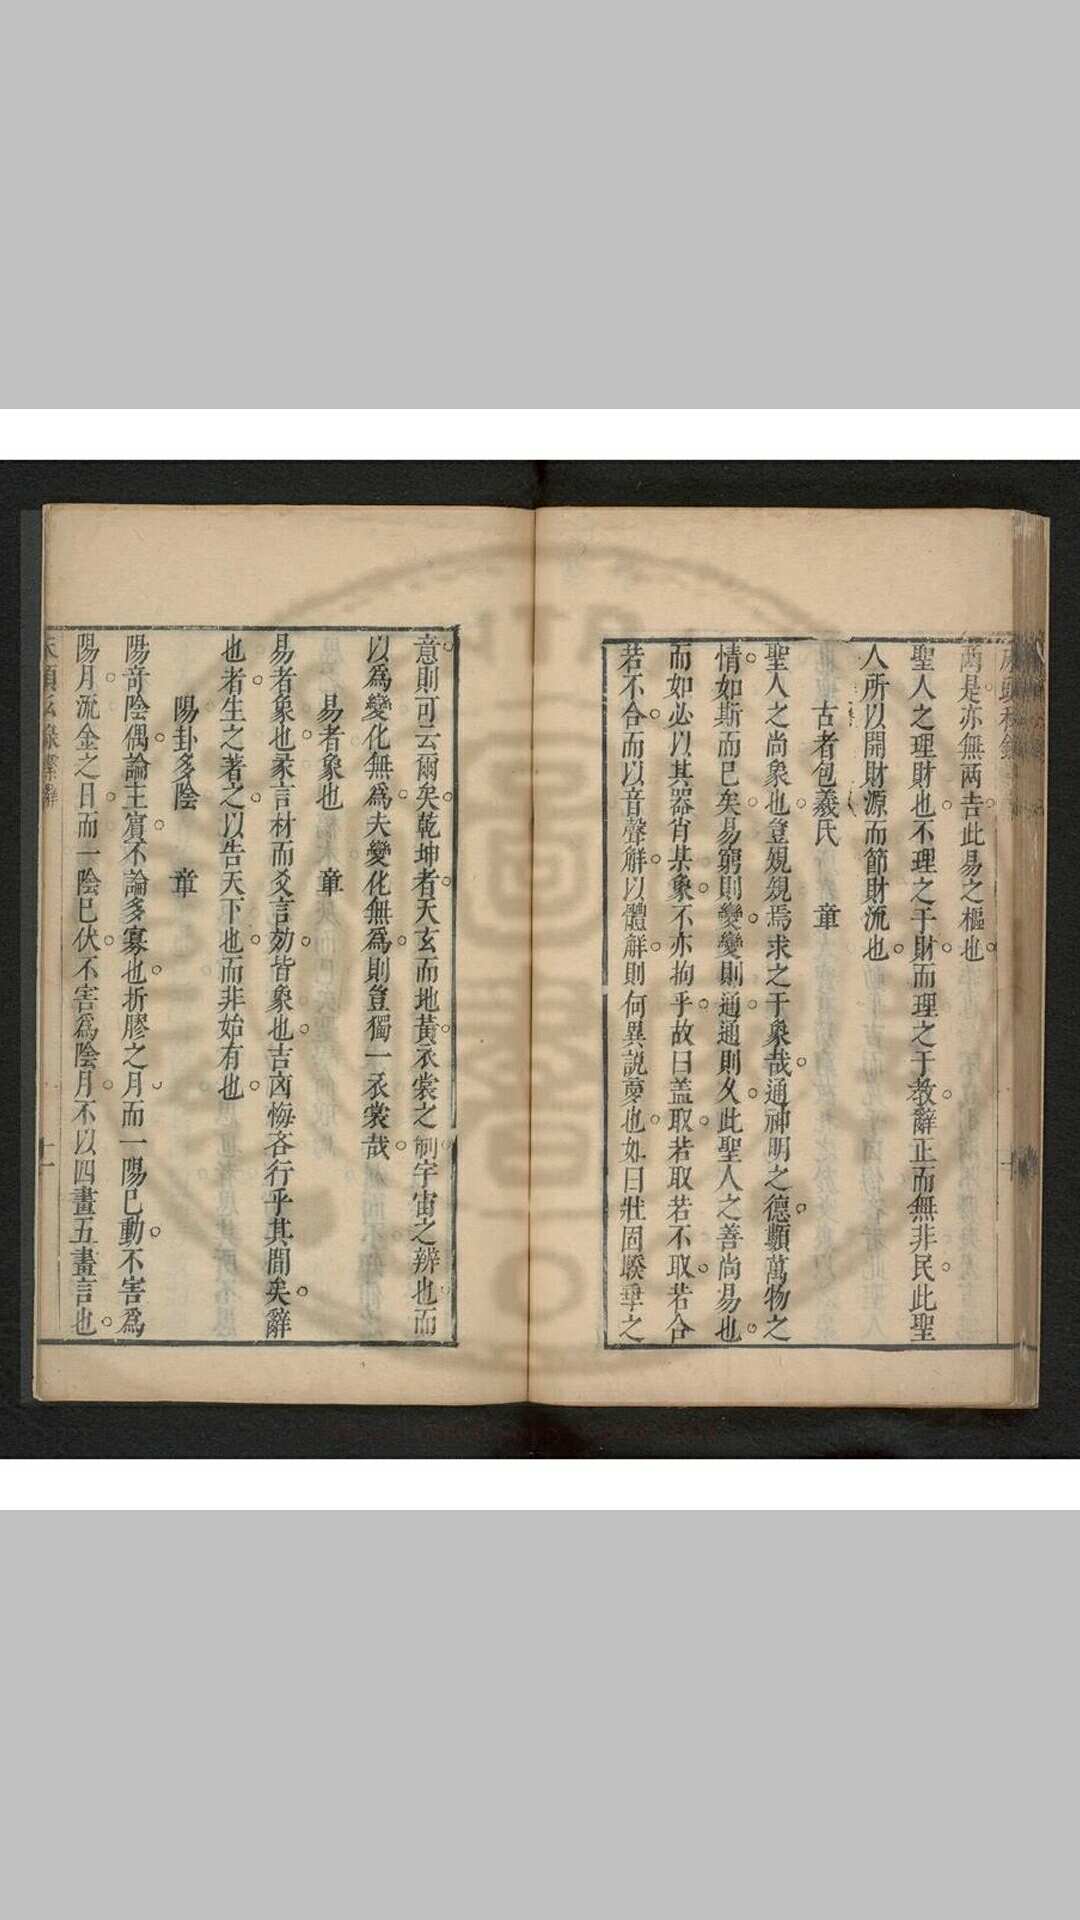 両是亦無两吉此易之樞也
聖人之理財也不理之于財而理之于教辭正而無非民此聖
人所以開財源而節財流也
古者包羲氏 章
聖人之尚象也豈規規焉求之于象哉通神明之德類萬物之
情如斯而已矣易窮則變變則通通則久此聖人之善尚易也
而如必以其器肖某象不亦拘乎故曰盖取若取若不取若合
若不合而以音聲解以體解則何異説夢也如曰壯固睽乖之
意則可云爾矣乾坤者天玄而地黃衣裳之制宇宙之辨也而
以爲變化無爲夫變化無爲則豈獨一衣裳哉
易者象也 章
易者象也彖言材而爻言効皆象也吉凶悔吝行乎其間矣辭
也者生之著之以告天下也而非始有也
陽卦多陰 章
陽奇陰偶論主賓不論多寡也折膠之月而一陽巳動不害爲
陽月流金之日而一陰巳伏不害爲陰月不以四畫五畫言也
十一